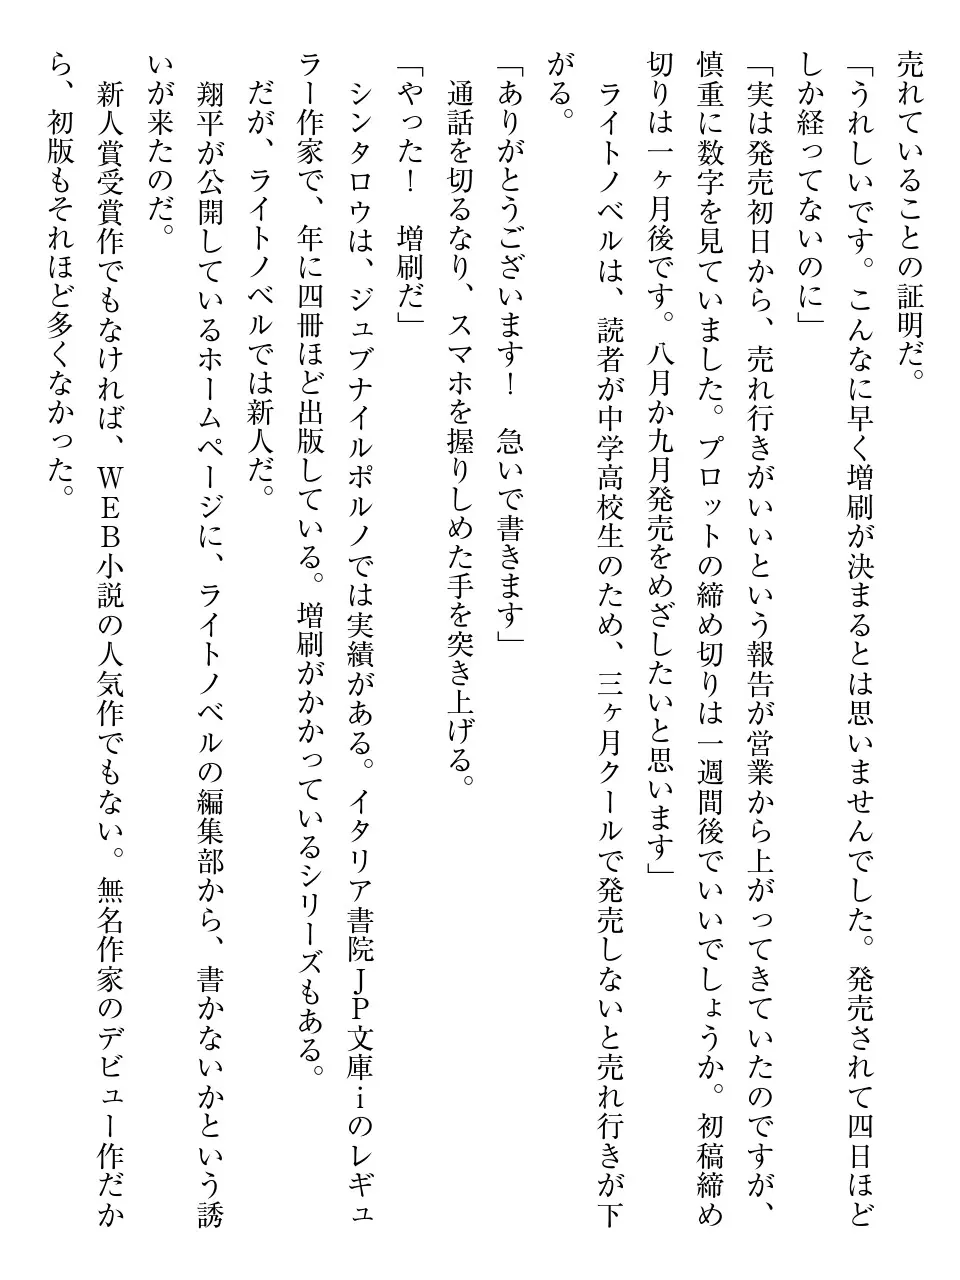 売れていることの証明だ。
「うれしいです。こんなに早く増刷が決まるとは思いませんでした。発売されて四日ほど
しか経ってないのに」
「実は発売初日から、売れ行きがいいという報告が営業から上がってきていたのですが、
慎重に数字を見ていました。プロットの締め切りは一週間後でいいでしょうか。初稿締め
切りは一ヶ月後です。八月か九月発売をめざしたいと思います」
　ライトノベルは、読者が中学高校生のため、三ヶ月クールで発売しないと売れ行きが下
がる。
「ありがとうございます！　急いで書きます」
　通話を切るなり、スマホを握りしめた手を突き上げる。
「やった！　増刷だ」
　シンタロウは、ジュブナイルポルノでは実績がある。イタリア書院ＪＰ文庫ｉのレギュ
ラー作家で、年に四冊ほど出版している。増刷がかかっているシリーズもある。
　だが、ライトノベルでは新人だ。
　翔平が公開しているホームページに、ライトノベルの編集部から、書かないかという誘
いが来たのだ。
　新人賞受賞作でもなければ、ＷＥＢ小説の人気作でもない。無名作家のデビュー作だか
ら、初版もそれほど多くなかった。